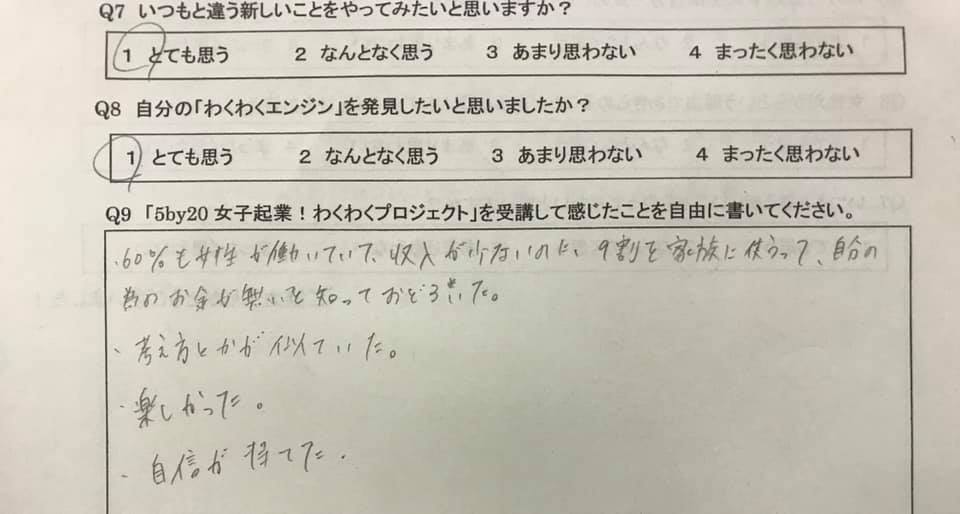 Q7 いつもと違う新しいことをやってみたいと思いますか？
1 とても思う 2 なんとなく思う 3 あまり思わない 4 まったく思わない
Q8 自分の「わくわくエンジン」を発見したいと思いましたか？
1 とても思う 2 なんとなく思う 3 あまり思わない 4 まったく思わない
Q9 「5by20 女子起業！わくわくプロジェクト」を受講して感じたことを自由に書いてください。
・60%も女性が働いていて、収入が少ないのに、9割を家族に使うって、自分の
為のお金が無いと知っておどろいた。
・考え方とかが似ていた。
・楽しかった。
・自信が持てた。